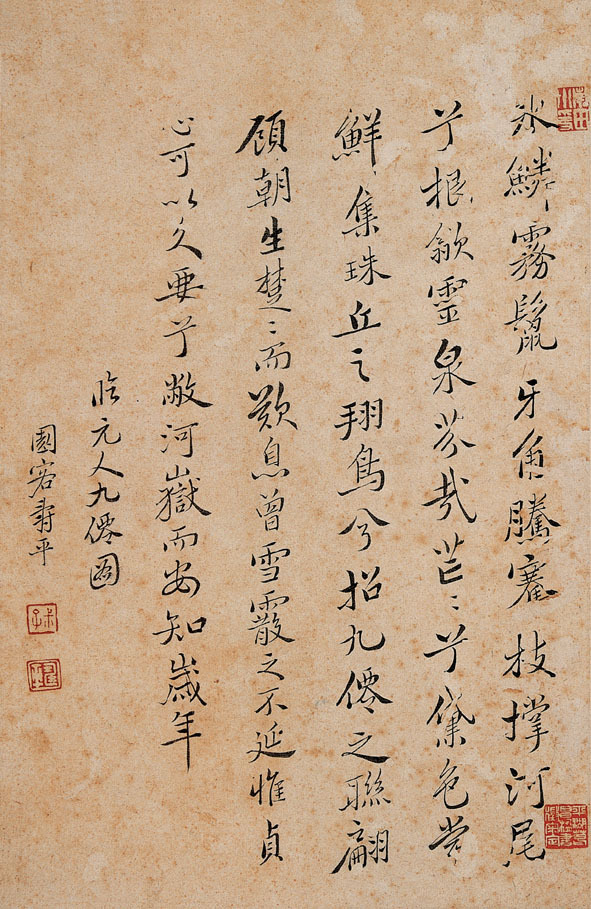 氷鱗霧鬣牙角騰騫枝撐河尾
兮根歙靈泉芬哉芒〻兮黛色常
鮮集珠丘之翔鳥兮招九僊之聯翩
顧朝生楚〻而歎息曾雪霰之不延惟貞
心可以久要兮敝河嶽而安知歲年
臨元人九僊圖
園客壽平